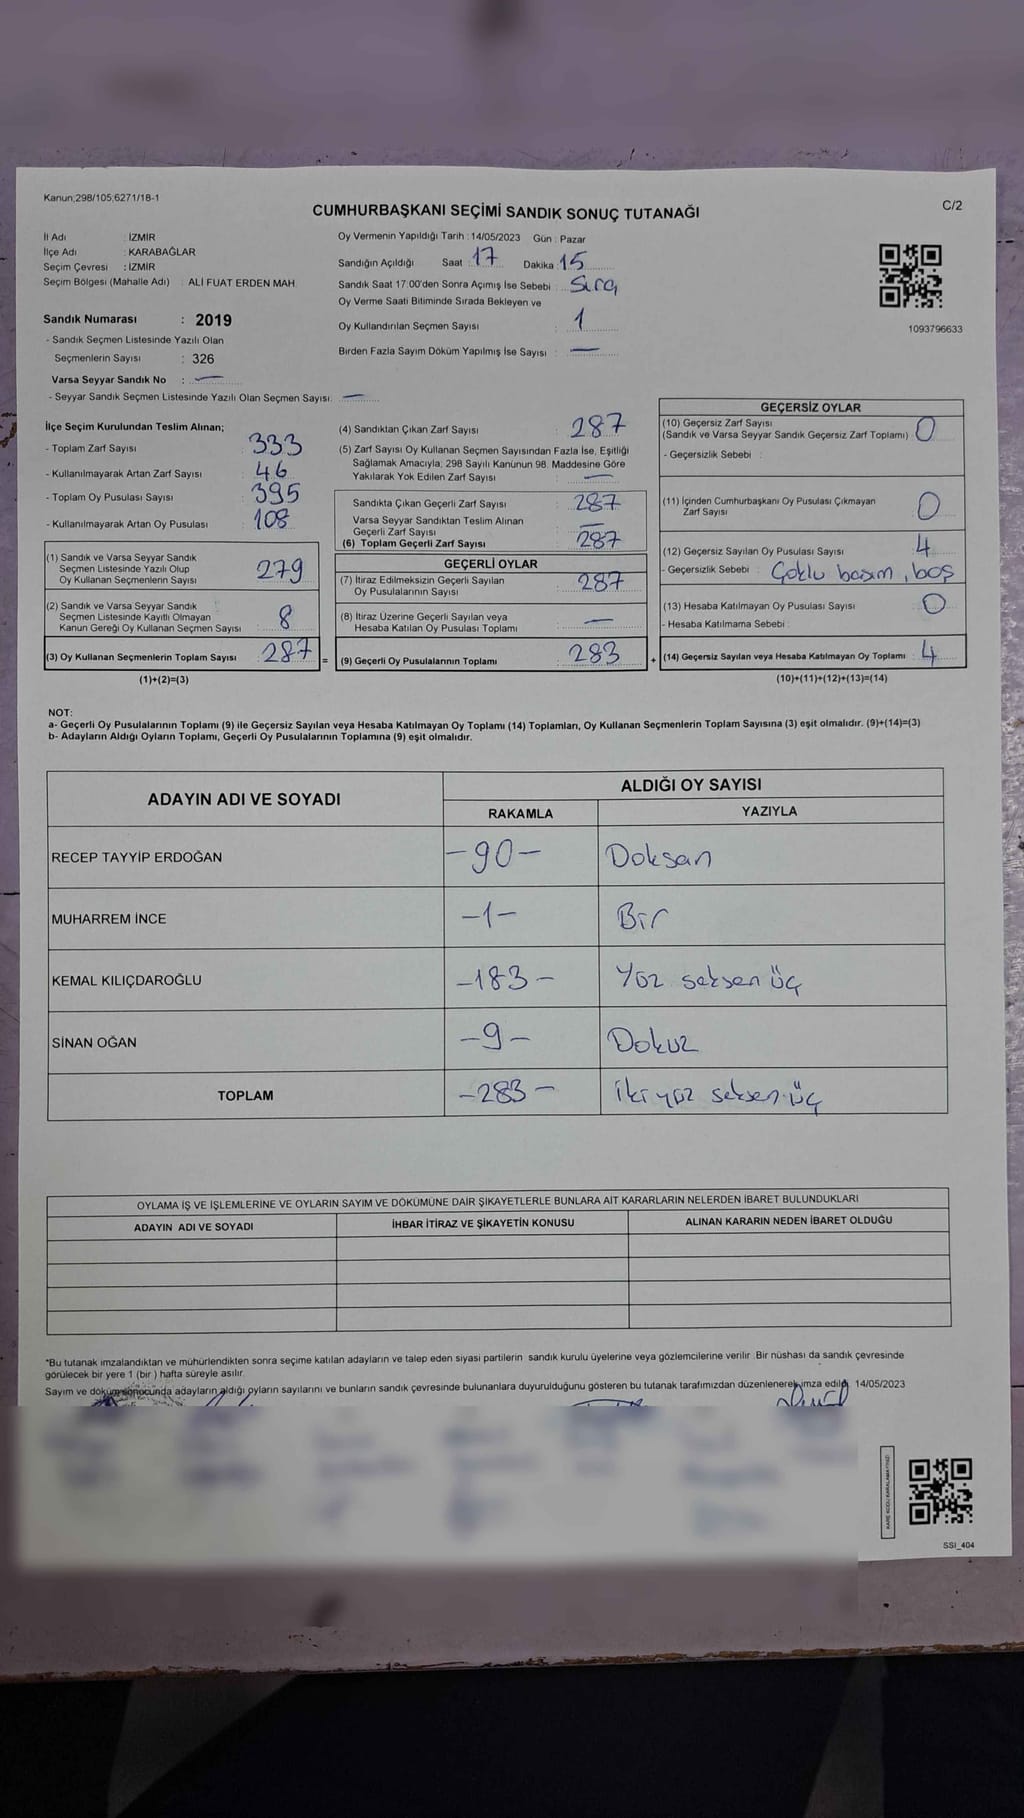 Kanun;298/105;6271/18-1
C/2
CUMHURBAŞKANI SEÇİMİ SANDIK SONUÇ TUTANAĞI
İl Adı : İZMİR
İlçe Adı : KARABAĞLAR
Seçim Çevresi : İZMİR
Seçim Bölgesi (Mahalle Adı) : ALİ FUAT ERDEN MAH.
Sandık Numarası : 2019
- Sandık Seçmen Listesinde Yazılı Olan
Seçmenlerin Sayısı : 326
Varsa Seyyar Sandık No : —
- Seyyar Sandık Seçmen Listesinde Yazılı Olan Seçmen Sayısı: —
Oy Vermenin Yapıldığı Tarih : 14/05/2023 Gün : Pazar
Sandığın Açıldığı Saat : 17 Dakika : 15
Sandık Saat 17:00'den Sonra Açımış İse Sebebi : Sıra
Oy Verme Saati Bitiminde Sırada Bekleyen ve
Oy Kullandırılan Seçmen Sayısı : 1
Birden Fazla Sayım Döküm Yapılmış İse Sayısı : —
1093796633
İlçe Seçim Kurulundan Teslim Alınan;
- Toplam Zarf Sayısı : 333
- Kullanılmayarak Artan Zarf Sayısı : 46
- Toplam Oy Pusulası Sayısı : 395
- Kullanılmayarak Artan Oy Pusulası : 108
(1) Sandık ve Varsa Seyyar Sandık
Seçmen Listesinde Yazılı Olup
Oy Kullanan Seçmenlerin Sayısı : 279
(2) Sandık ve Varsa Seyyar Sandık
Seçmen Listesinde Kayıtlı Olmayan
Kanun Gereği Oy Kullanan Seçmen Sayısı : 8
(3) Oy Kullanan Seçmenlerin Toplam Sayısı : 287 =
(1)+(2)=(3)
(4) Sandıktan Çıkan Zarf Sayısı : 287
(5) Zarf Sayısı Oy Kullanan Seçmen Sayısından Fazla İse, Eşitliği
Sağlamak Amacıyla; 298 Sayılı Kanunun 98. Maddesine Göre
Yakılarak Yok Edilen Zarf Sayısı : —
Sandıkta Çıkan Geçerli Zarf Sayısı : 287
Varsa Seyyar Sandıktan Teslim Alınan
Geçerli Zarf Sayısı : —
(6) Toplam Geçerli Zarf Sayısı : 287
GEÇERLİ OYLAR
(7) İtiraz Edilmeksizin Geçerli Sayılan
Oy Pusulalarının Sayısı : 287
(8) İtiraz Üzerine Geçerli Sayılan veya
Hesaba Katılan Oy Pusulası Toplamı : —
(9) Geçerli Oy Pusulalarının Toplamı : 283 +
GEÇERSİZ OYLAR
(10) Geçersiz Zarf Sayısı
(Sandık ve Varsa Seyyar Sandık Geçersiz Zarf Toplamı) : 0
- Geçersizlik Sebebi :
(11) İçinden Cumhurbaşkanı Oy Pusulası Çıkmayan
Zarf Sayısı : 0
(12) Geçersiz Sayılan Oy Pusulası Sayısı : 4
- Geçersizlik Sebebi : Çoklu basım, boş
(13) Hesaba Katılmayan Oy Pusulası Sayısı : 0
- Hesaba Katılmama Sebebi :
(14) Geçersiz Sayılan veya Hesaba Katılmayan Oy Toplamı : 4
(10)+(11)+(12)+(13)=(14)
NOT:
a- Geçerli Oy Pusulalarının Toplamı (9) ile Geçersiz Sayılan veya Hesaba Katılmayan Oy Toplamı (14) Toplamları, Oy Kullanan Seçmenlerin Toplam Sayısına (3) eşit olmalıdır. (9)+(14)=(3)
b- Adayların Aldığı Oyların Toplamı, Geçerli Oy Pusulalarının Toplamına (9) eşit olmalıdır.
ADAYIN ADI VE SOYADI
ALDIĞI OY SAYISI
RAKAMLA YAZIYLA
RECEP TAYYİP ERDOĞAN -90- Doksan
MUHARREM İNCE -1- Bir
KEMAL KILIÇDAROĞLU -183- Yüz seksen üç
SİNAN OĞAN -9- Dokuz
TOPLAM -283- İki yüz seksen üç
OYLAMA İŞ VE İŞLEMLERİNE VE OYLARIN SAYIM VE DÖKÜMÜNE DAİR ŞİKAYETLERLE BUNLARA AİT KARARLARIN NELERDEN İBARET BULUNDUKLARI
ADAYIN ADI VE SOYADI İHBAR İTİRAZ VE ŞİKAYETİN KONUSU ALINAN KARARIN NEDEN İBARET OLDUĞU
*Bu tutanak imzalandıktan ve mühürlendikten sonra seçime katılan adayların ve talep eden siyasi partilerin sandık kurulu üyelerine veya gözlemcilerine verilir. Bir nüshası da sandık çevresinde
görülecek bir yere 1 (bir ) hafta süreyle asılır.
Sayım ve döküm sonucunda adayların aldığı oyların sayılarını ve bunların sandık çevresinde bulunanlara duyurulduğunu gösteren bu tutanak tarafımızdan düzenlenerek imza edildi. 14/05/2023
KARE KODU KARALAMAYINIZ!
SSI_404